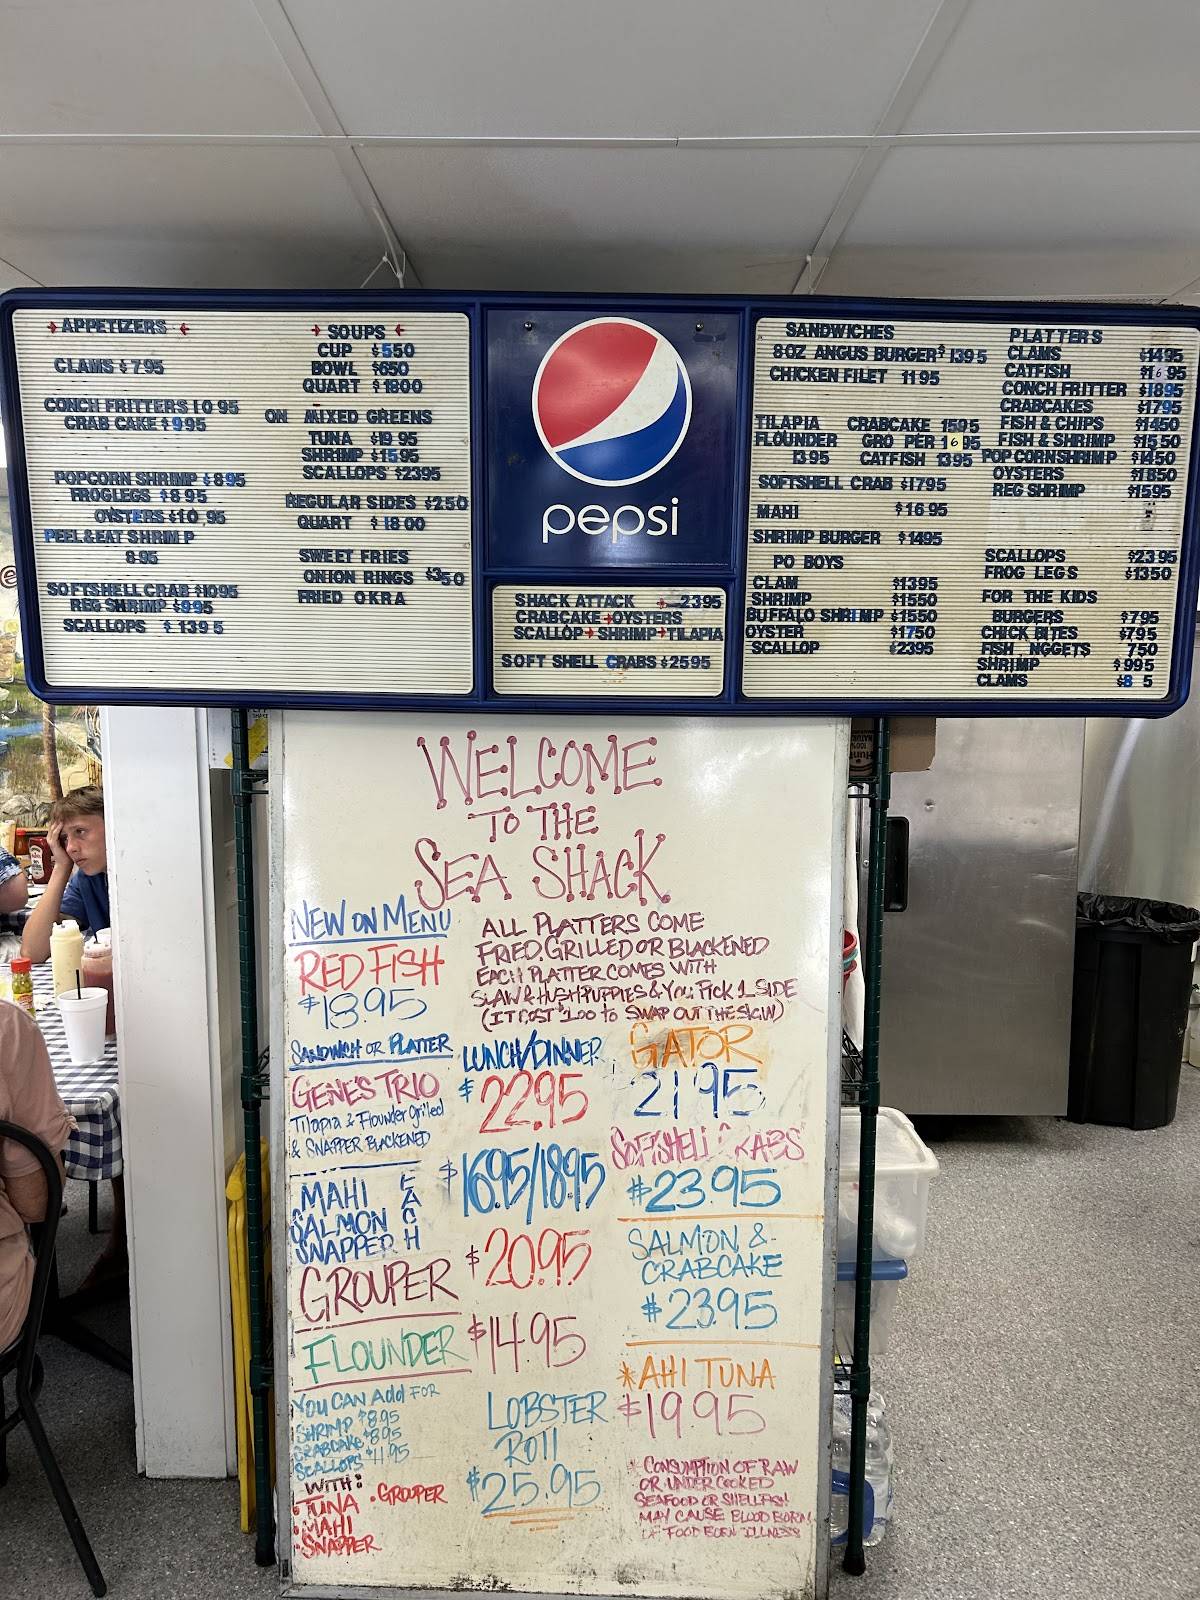 APPETIZERS
CLAMS $795
CONCH FRITTERS 10 95
CRAB CAKE $995
POPCORN SHRIMP $895
FROGLEGS $895
OYSTERS $10,95
PEEL&EAT SHRIMP
8.95
SOFTSHELL CRAB $1095
REG SHRIMP $995
SCALLOPS $1395
SOUPS
CUP $550
BOWL $650
QUART $1800
ON MIXED GREENS
TUNA $19 95
SHRIMP $1595
SCALLOPS $2395
REGULAR SIDES $250
QUART $1800
SWEET FRIES
ONION RINGS $350
FRIED OKRA
pepsi
SHACK ATTACK 2395
CRABCAKE OYSTERS
SCALLOP SHRIMP TILAPIA
SOFT SHELL CRABS $2595
SANDWICHES
8OZ ANGUS BURGER $1395
CHICKEN FILET 1195
TILAPIA CRABCAKE 1595
FLOUNDER GRO PER 1695
1395 CATFISH 1395
SOFTSHELL CRAB $1795
MAHI $1695
SHRIMP BURGER $1495
PO BOYS
CLAM $1395
SHRIMP $1550
BUFFALO SHRIMP $1550
OYSTER $1750
SCALLOP $2395
PLATTERS
CLAMS $1495
CATFISH $1695
CONCH FRITTER $1895
CRABCAKES $1795
FISH & CHIPS $1450
FISH & SHRIMP $1550
POPCORN SHRIMP $1450
OYSTERS $1850
REG SHRIMP $1595
SCALLOPS $2395
FROG LEGS $1350
FOR THE KIDS
BURGERS $795
CHICK BITES $795
FISH NGGETS 750
SHRIMP $995
CLAMS $8 5
WELCOME
TO THE
SEA SHACK
NEW ON MENU
RED FISH
$18.95
SANDWICH OR PLATTER
ALL PLATTERS COME
FRIED, GRILLED OR BLACKENED
EACH PLATTER COMES WITH
SLAW & HUSHPUPPIES & YOU PICK 1 SIDE
(IT COST $1.00 TO SWAP OUT THE SLAW)
LUNCH/DINNER
GENE'S TRIO $22.95
Tilapia & Flounder Grilled
& SNAPPER BLACKENED
MAHI EACH $16.95/18.95
SALMON
SNAPPER
GROUPER $20.95
FLOUNDER $14.95
YOU CAN Add FOR
SHRIMP $8.95
CRABCAKE $8.95
SCALLOPS $11.95
WITH:
• TUNA • GROUPER
• MAHI
• SNAPPER
LOBSTER
ROLL
$25.95
GATOR
21.95
SOFTSHELL CRABS
$23.95
SALMON &
CRABCAKE
$23.95
*AHI TUNA
$19.95
* CONSUMPTION OF RAW
OR UNDERCOOKED
SEAFOOD OR SHELLFISH
MAY CAUSE BLOOD BORN
OF FOOD BORN ILLNESS